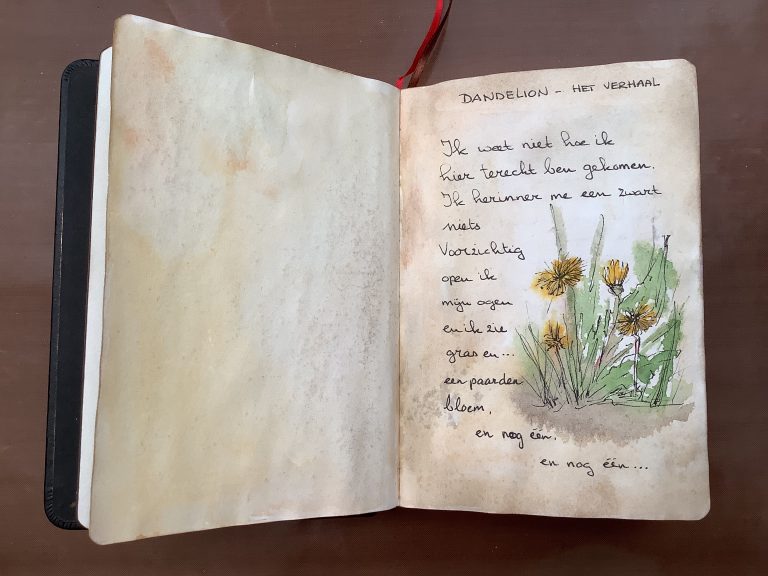 DANDELION - HET VERHAAL
Ik weet niet hoe ik
hier terecht ben gekomen.
Ik herinner me een zwart
niets
Voorzichtig
open ik
mijn ogen
en ik zie
gras en...
een paarden
bloem,
en nog één,
en nog één...